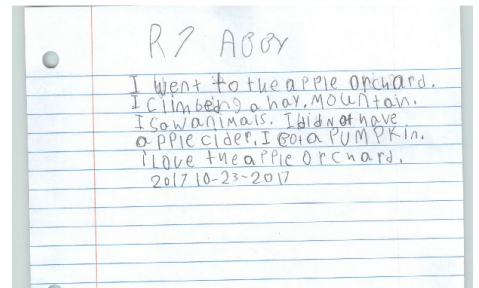 R7 ABBY
I went to the apple orchard.
I climbeing a hay. Mountain.
I sawanimals. I did not have
apple cider. I Gota PUMPKin.
i Love the aPPle Orchard.
2017 10-23-2017